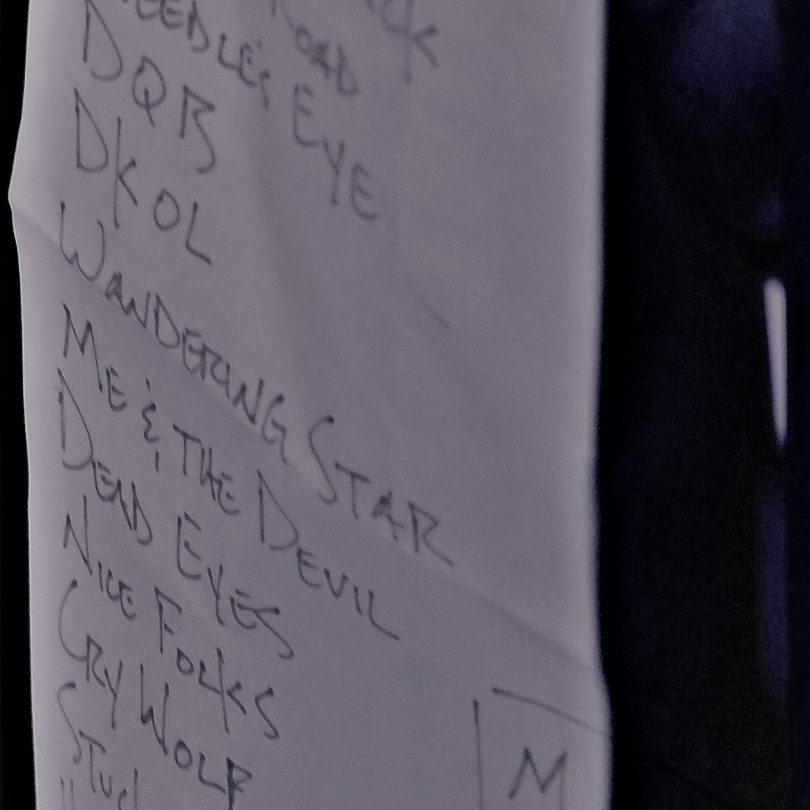 ROAD
NEEDLE'S EYE
DQB
DKOL
WANDERING STAR
ME & THE DEVIL
DEAD EYES
NICE FOLKS
CRY WOLF
M